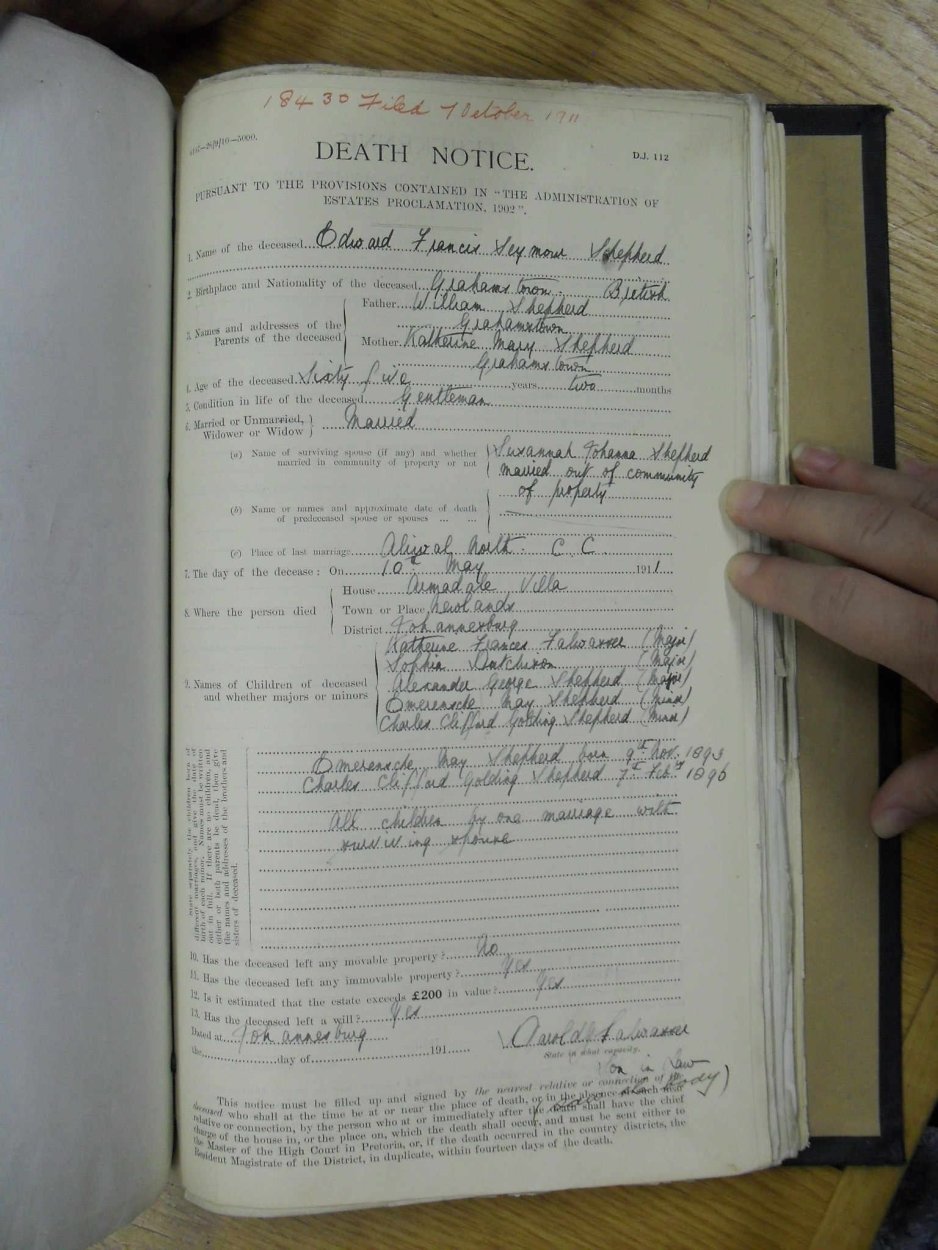 18430 Filed 7 October 1911
—26/9/10—5000.
DEATH NOTICE.
D.J. 112
PURSUANT TO THE PROVISIONS CONTAINED IN "THE ADMINISTRATION OF
ESTATES PROCLAMATION, 1902".
1. Name of the deceased Edward Francis Seymour Shepherd
2. Birthplace and Nationality of the deceased Grahamstown. British
3. Names and addresses of the Parents of the deceased
Father William Shepherd
Grahamstown
Mother Katherine Mary Shepherd
Grahamstown
4. Age of the deceased Sixty five years two months
5. Condition in life of the deceased Gentleman
6. Married or Unmarried, Widower or Widow Married
(a) Name of surviving spouse (if any) and whether married in community of property or not
Susannah Johanna Shepherd
married out of community
of property
(b) Name or names and approximate date of death of predeceased spouse or spouses ... ...
(c) Place of last marriage Aliwal North. C. C.
7. The day of the decease: On 10th May 1911
8. Where the person died
House Armadale Villa
Town or Place Newlands
District Johannesburg
9. Names of Children of deceased and whether majors or minors
Katherine Frances (Major)
Sophia Hutchison (Major)
Alexander George Shepherd (Major)
Emerensche May Shepherd (Minor)
Charles Clifford Golding Shepherd (Minor)
State separately the children born of
different marriages, and give the date of
birth of each minor. Names must be written
out in full. If there are no children, and
either or both parents be dead, then give
the names and addresses of the brothers and
sisters of deceased.
Emerensche May Shepherd born 9th Nov. 1893
Charles Clifford Golding Shepherd 7th Feby 1896
All children by one marriage with
surviving spouse
10. Has the deceased left any movable property? No
11. Has the deceased left any immovable property? Yes
12. Is it estimated that the estate exceeds £200 in value? Yes
13. Has the deceased left a will? Yes
Dated at Johannesburg
the day of 191
State in what capacity.
Son in law
body)
This notice must be filled up and signed by the nearest relative or connection of the
deceased who shall at the time be at or near the place of death, or in the absence of such near
relative or connection, by the person who at or immediately after the death shall have the chief
charge of the house in, or the place on, which the death shall occur, and must be sent either to
the Master of the High Court in Pretoria, or, if the death occurred in the country districts, the
Resident Magistrate of the District, in duplicate, within fourteen days of the death.